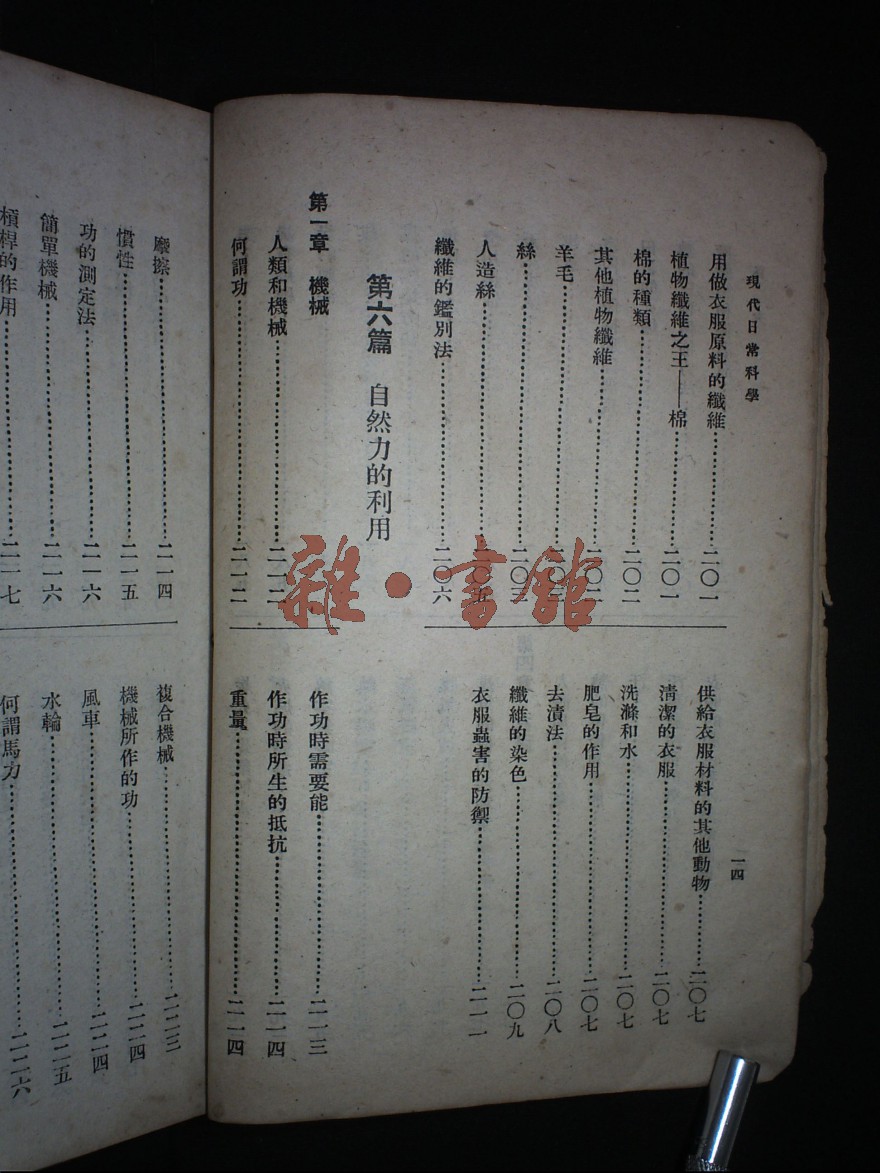 現代日常科學
一四
用做衣服原料的纖維……二〇一
植物纖維之王——棉……二〇一
棉的種類……二〇二
其他植物纖維……二〇二
羊毛……二〇三
絲……二〇三
人造絲……二〇五
纖維的鑑別法……二〇六
供給衣服材料的其他動物……二〇七
清潔的衣服……二〇七
洗滌和水……二〇七
肥皂的作用……二〇七
去漬法……二〇八
纖維的染色……二〇九
衣服蟲害的防禦……二一一
第六篇 自然力的利用
第一章 機械
人類和機械……二一二
何謂功……二一二
作功時需要能……二一三
作功時所生的抵抗……二一四
重量……二一四
摩擦……二一四
慣性……二一五
功的測定法……二一六
簡單機械……二一六
槓桿的作用……二一七
複合機械……二二三
機械所作的功……二二四
風車……二二四
水輪……二二五
何謂馬力……二二六
雜·書館